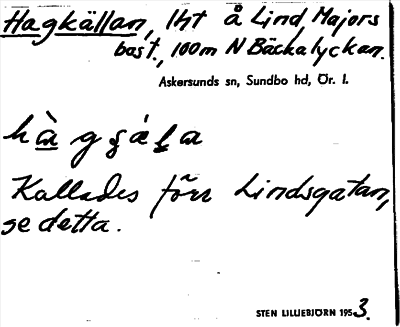 Hagkällan, lht å Lind, Majors
bost., 100m N Bäckalyckan.
Askersunds sn, Sundbo hd, Ör. l.
Kallades förr Lindsgatan,
se detta.
STEN LILLIEBJÖRN 1953.